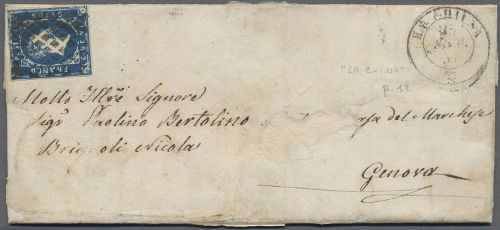 FRANCO
LA CHIUSA
"LA CHIUSA"
P. 12
Molto Illre Signore
Sigr Paolino Bertolino
del Marchese
Brignoli Nicola
Genova